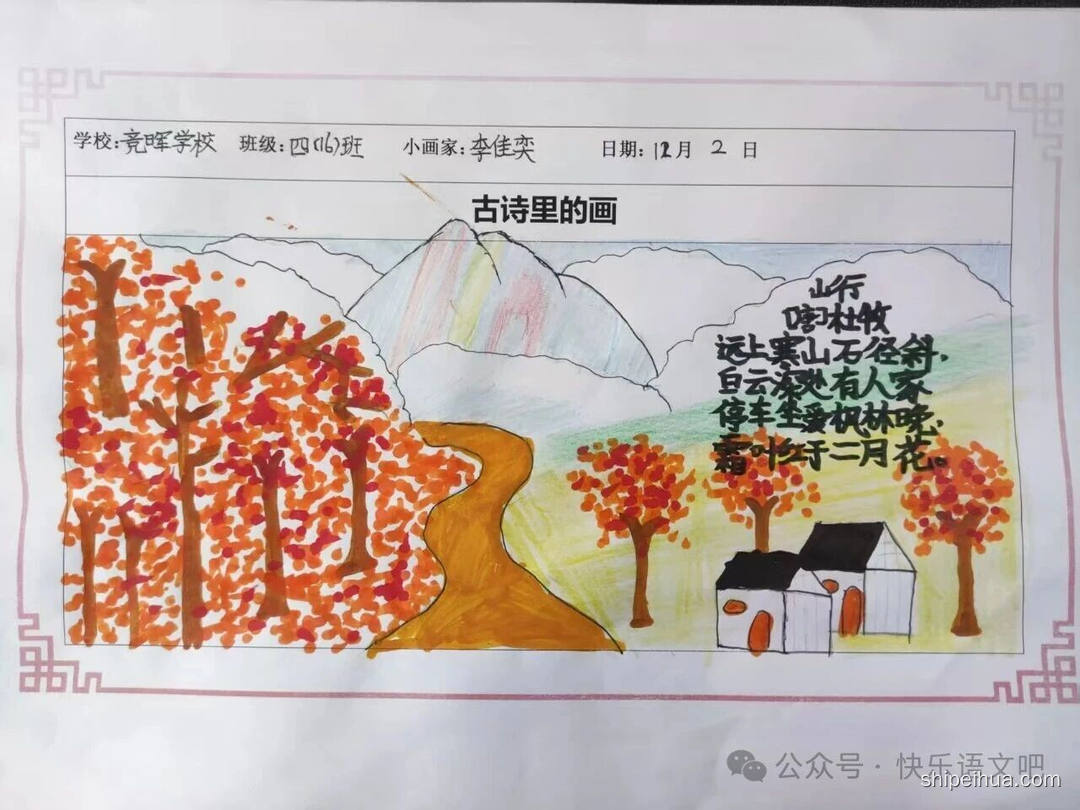 学校:竞晖学校 班级:四(16)班 小画家:李佳奕 日期:12月 2 日
古诗里的画
山行
[唐]杜牧
远上寒山石径斜,
白云深处有人家
停车坐爱枫林晚,
霜叶红于二月花。
公众号·快乐语文吧
shipeihua.com